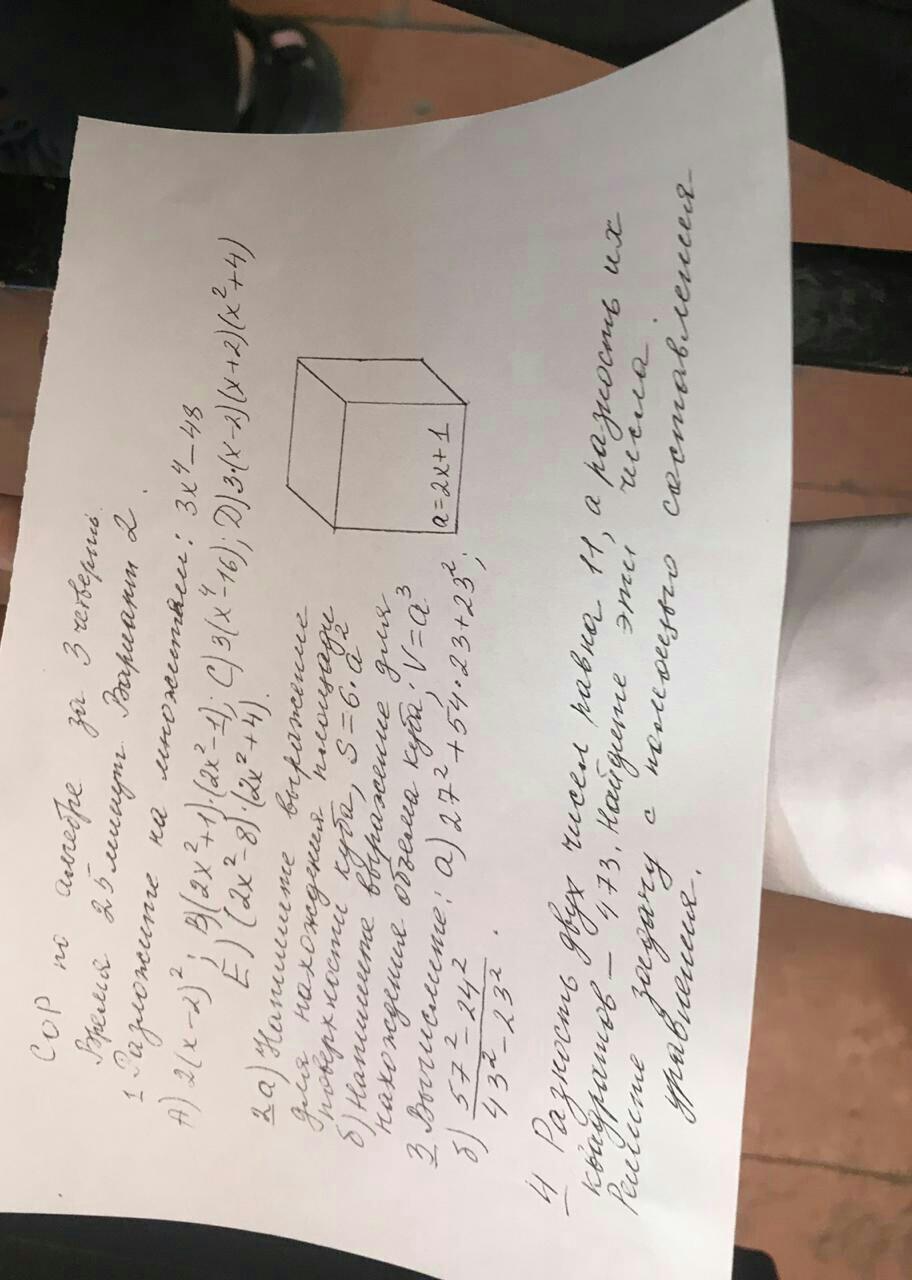 СОР по алгебре за 3 четверть.
Время 25 минут. Вариант 2.
1 Разложите на множители: 3x⁴-48
A) 2(x-2)²; B)(2x²+1)·(2x²-1); C) 3(x⁴-16); D) 3·(x-2)(x+2)(x²+4)
E) (2x²-8)·(2x²+4).
2 а) Напишите выражение
для нахождения площади
поверхности куба, S=6·a²
б) Напишите выражение для
нахождения объема куба; V=a³
a=2x+1
3 Вычислите: а) 27²+54·23+23²;
б) 57²-24²
43²-23² .
4 Разность двух чисел равна 11, а разность их
квадратов – 473. Найдите эти числа.
Решите задачу с помощью составления
уравнения.